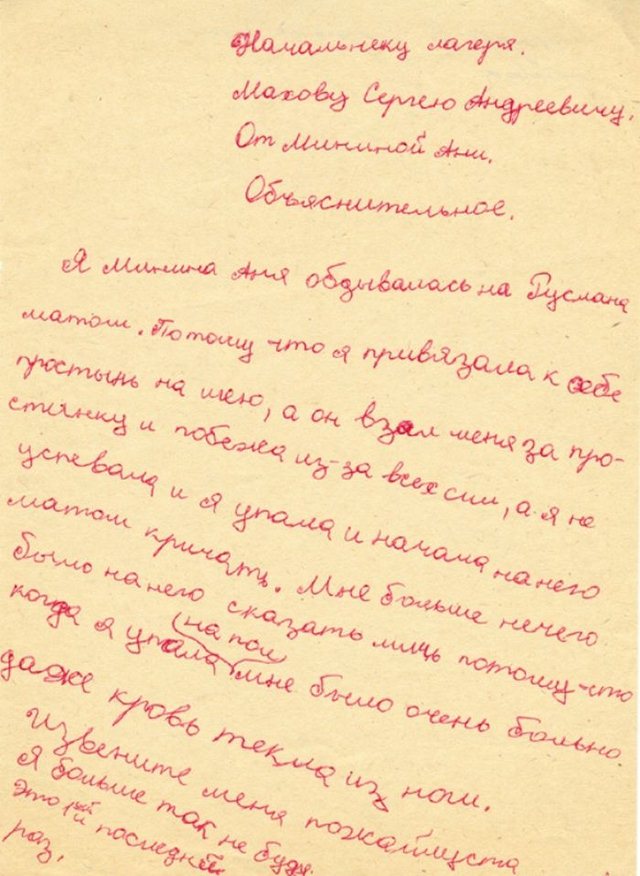 Начальнеку лагеря.
Махову Сергею Андреевичу.
От Мининой Ани.
Объяснительное.
Я Минина Аня обдывалась на Руслана
матом. Потому-что я привязала к себе
простынь на шею, а он взял меня за про-
стынку и побежа из-за всех сил, а я не
успевала и я упала и начала на него
матом кричать. Мне больше нечего
было на него сказать лишь потому-что
когда я упала (на пол) мне было очень больно.
даже кровь текла из ноги.
Извените меня пожайлуста
Я больше так не буду.
Это 1ый и последней
раз.